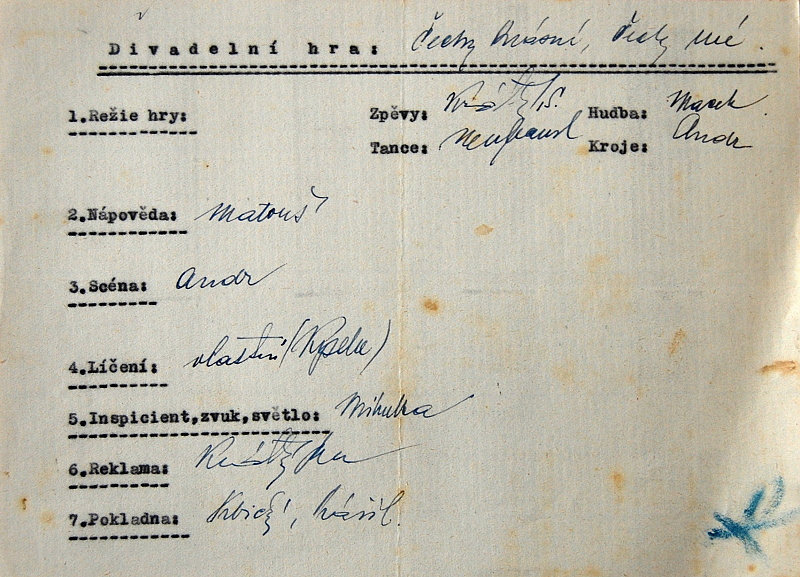 Divadelní hra: Čechy krásné, Čechy mé.
1.Režie hry: Zpěvy: Krátký S. Hudba: Macek
Tance: Neuhausl Kroje: Andr
2.Nápověda: Matouš
3.Scéna: Andr
4.Líčení: vlastní (Kysela)
5.Inspicient,zvuk,světlo: Mihulka
6.Reklama: Krátký
7.Pokladna: